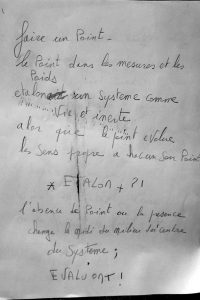 faire un Point -
le Point dans les mesures et les
Poids
etalon son Systeme comme
Vie et inerte
alor que le point evolue
les Sens propre a chacun Son Point
* ETALON + ?!
l'absence de Point ou la presence
change le du milieu
du Systeme ;
EVALUONT !